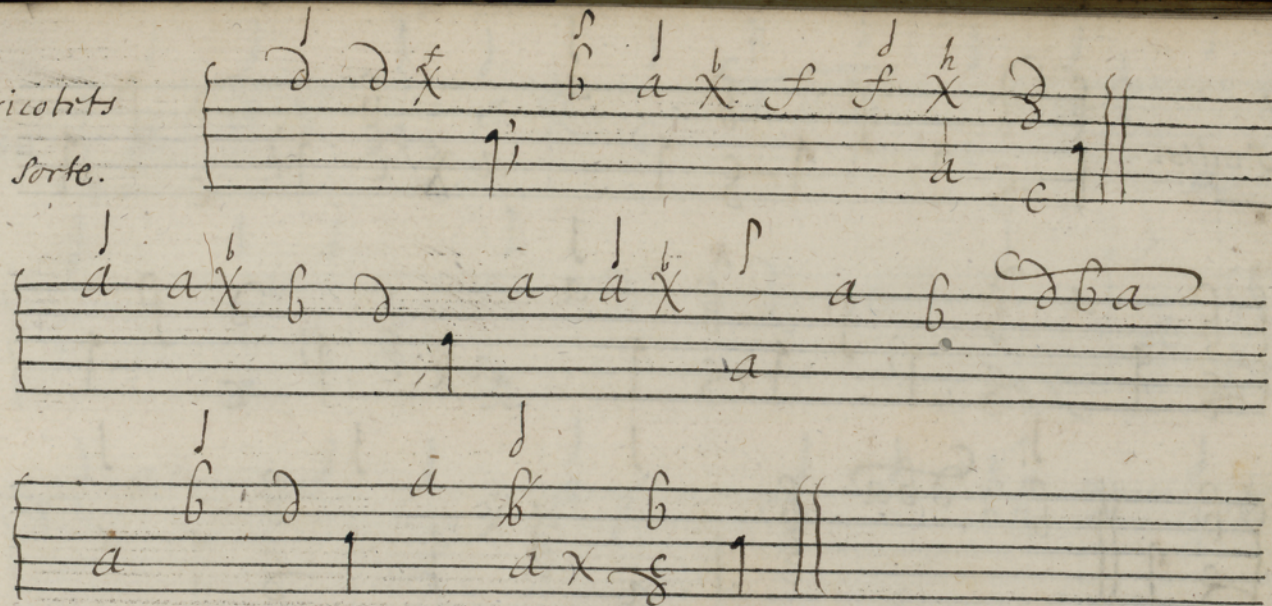 icotets
sorte.
f b h
d d x b a x f f x d
a c
b b
a a x b d a a x a b d b a
a
b d a b b
a a x c